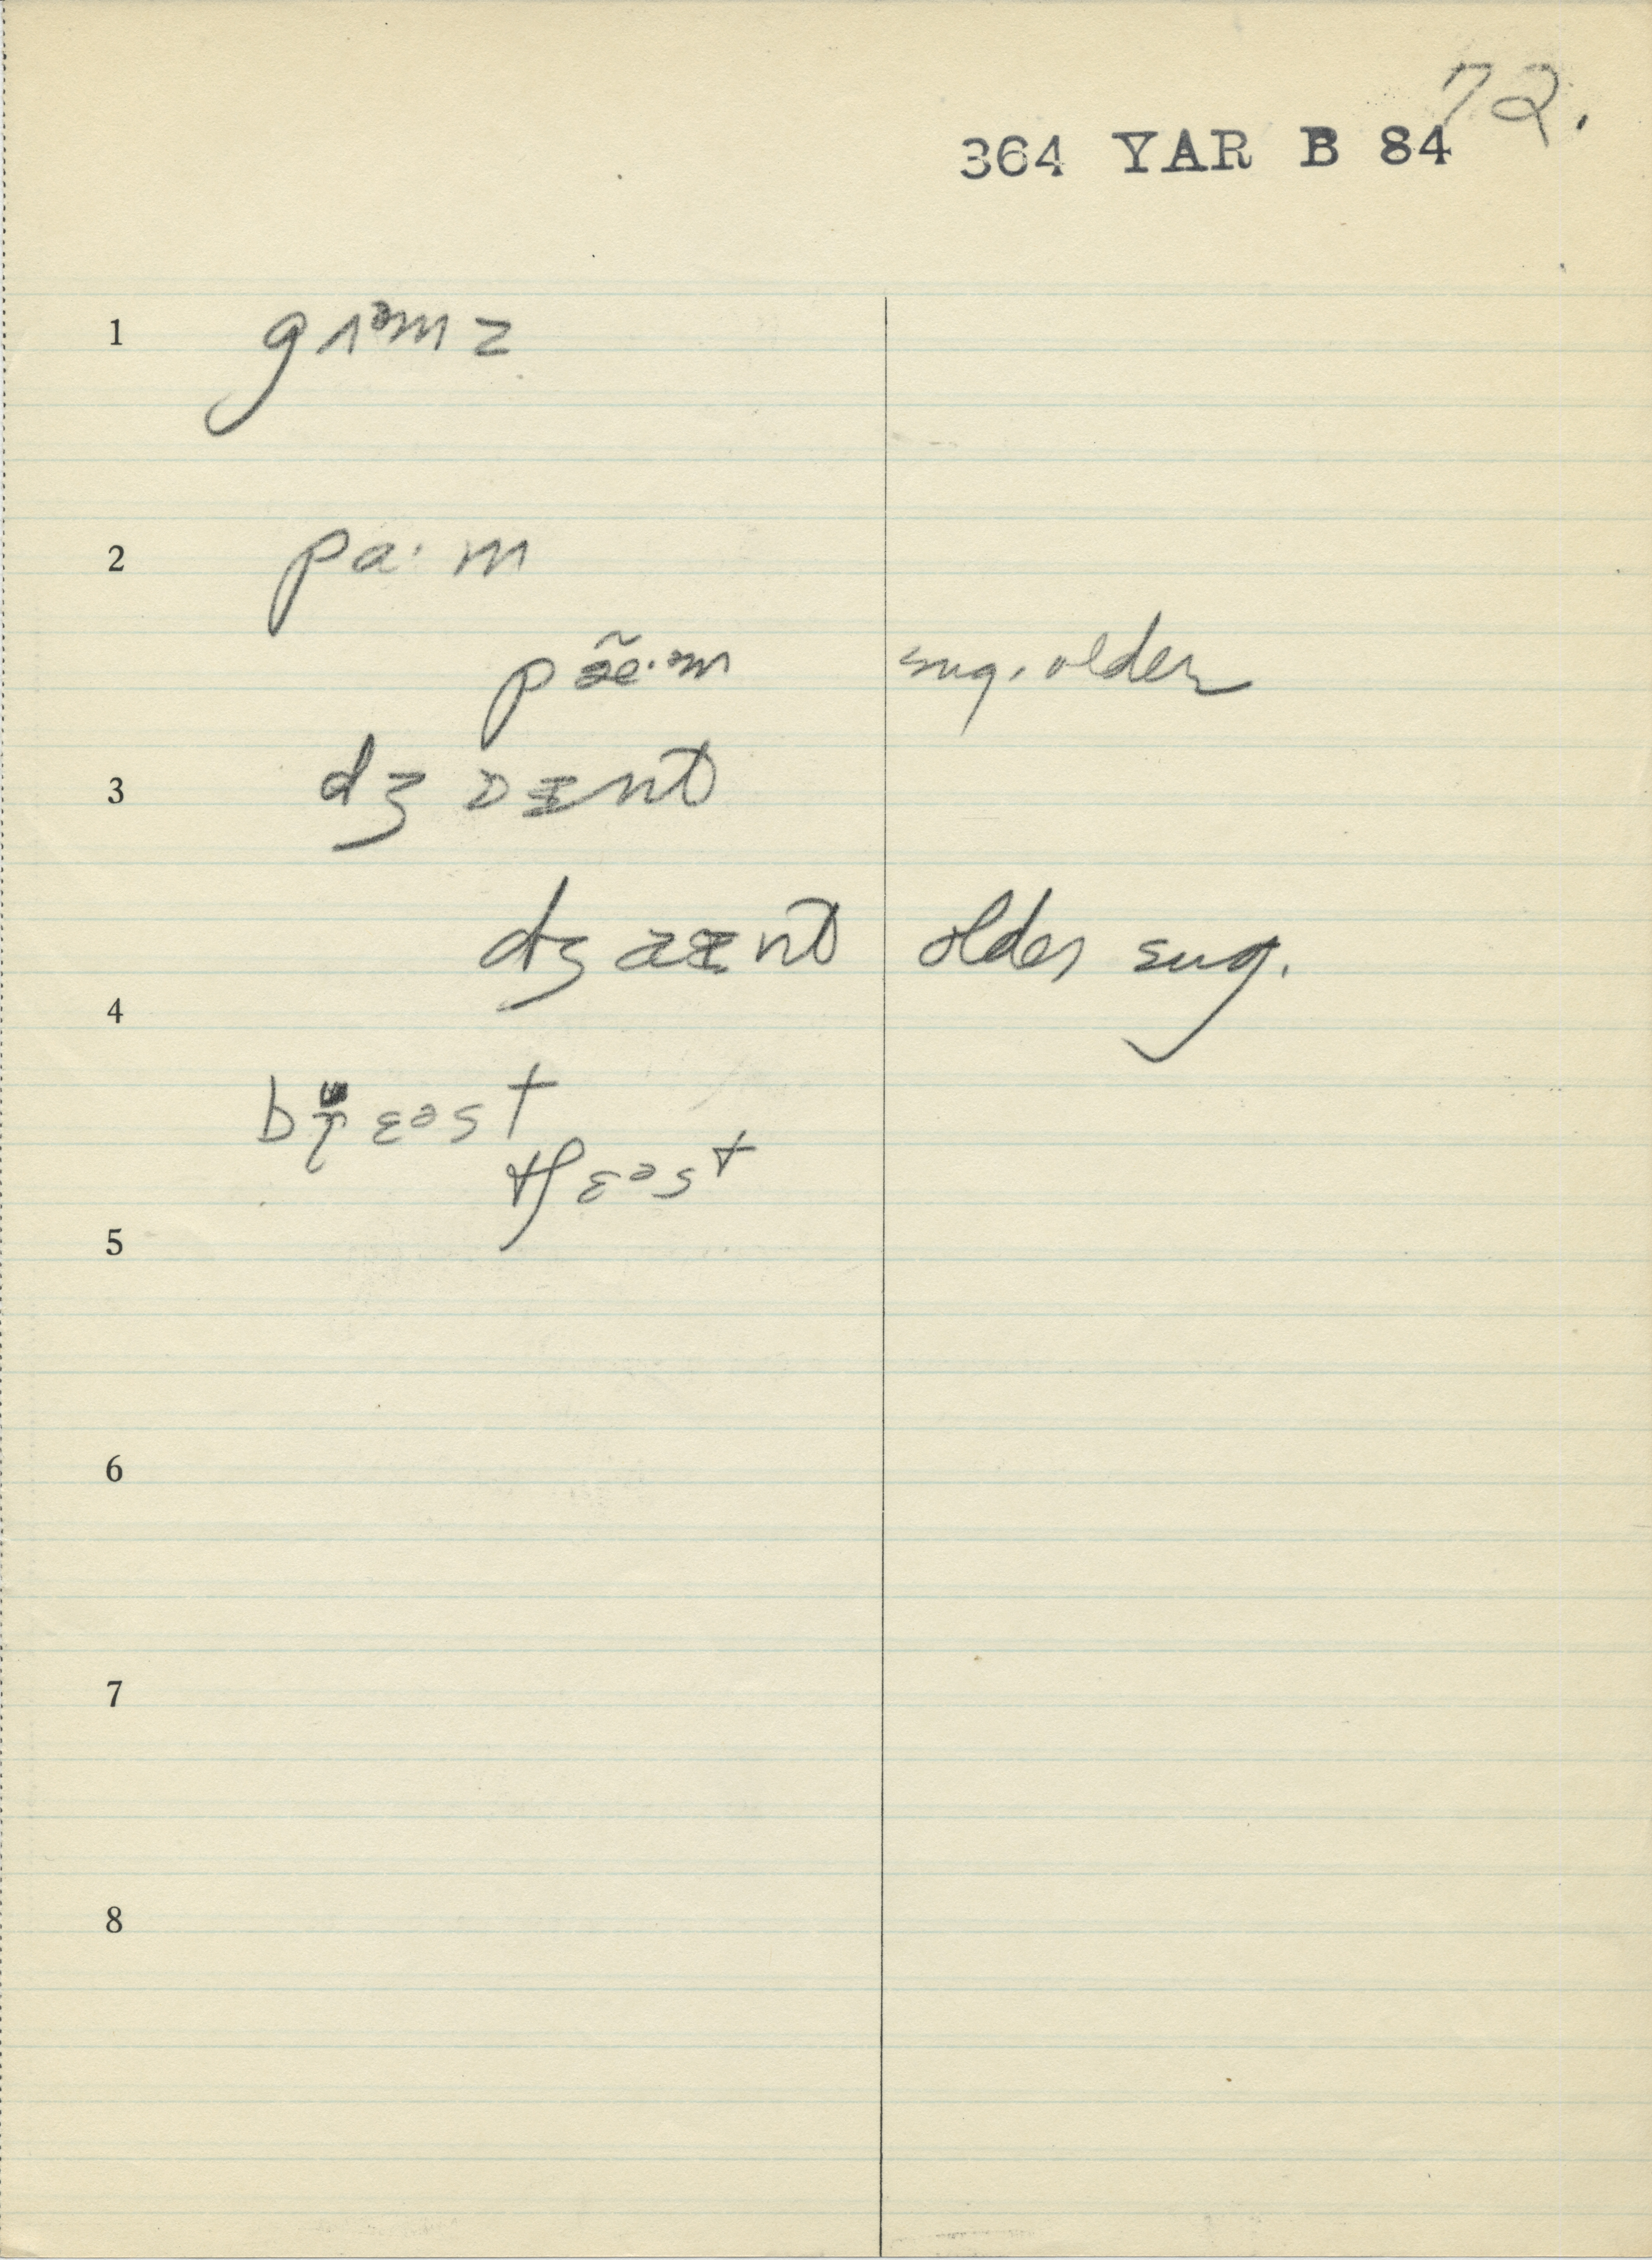 72.
364 YAR B 84
1 gʌᵊmz
2 pa·m
pæ̃·m sug. older
3 dʒɔɪnt
dʒaɪnt older sug.
4
ɛᵊst
tʃɛᵊst
5
6
7
8